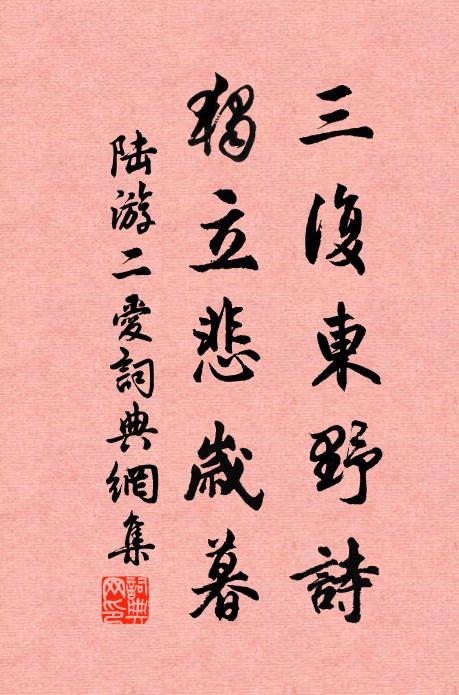 三復東野詩
獨立悲歲暮
陸游二愛詞典網集
詞典網印